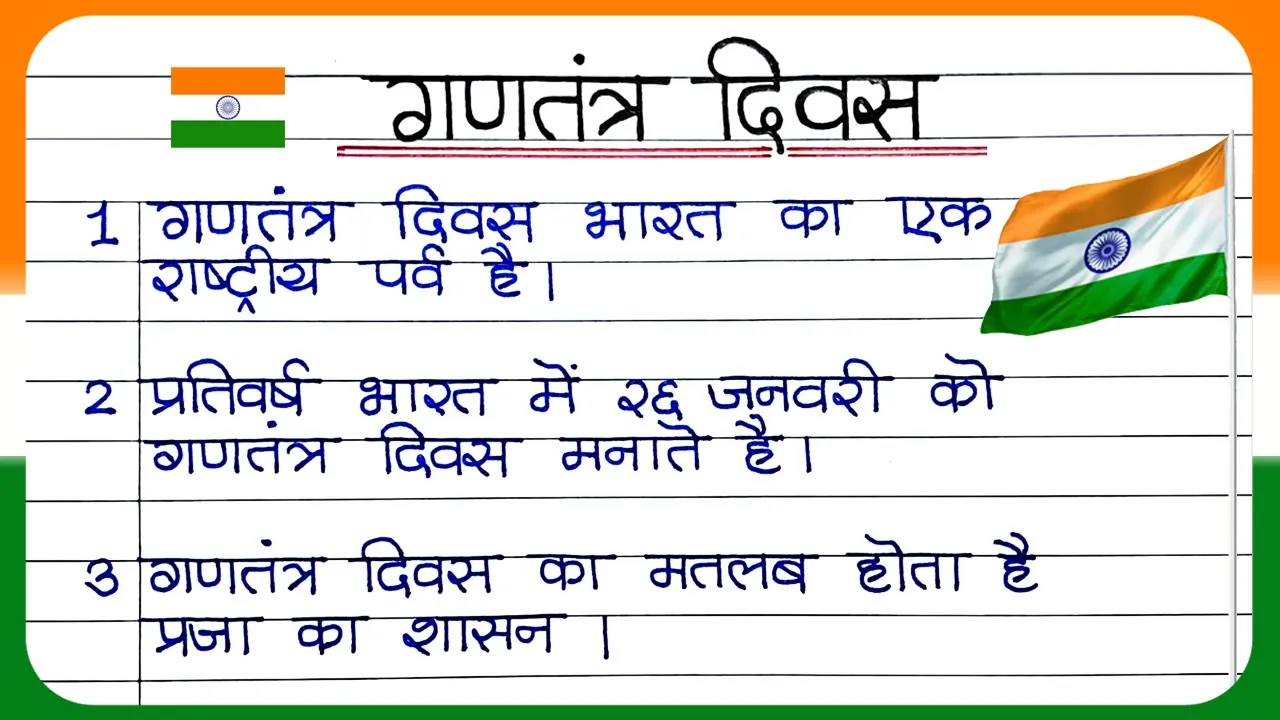 गणतंत्र दिवस
1 गणतंत्र दिवस भारत का एक
राष्ट्रीय पर्व है।
2 प्रतिवर्ष भारत में २६ जनवरी को
गणतंत्र दिवस मनाते है।
3 गणतंत्र दिवस का मतलब होता है
प्रजा का शासन ।